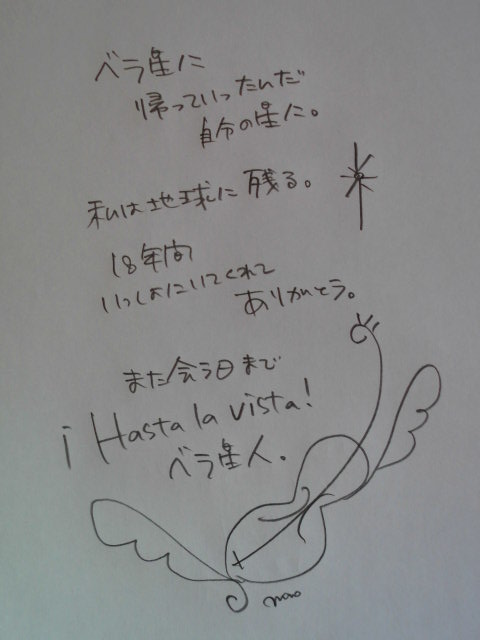 ベラ星に
帰っていったんだ
自分の星に。
私は地球に残る。
18年間
いっしょにいてくれて
ありがとう。
また会う日まで
¡Hasta la vista!
ベラ星人。
nao